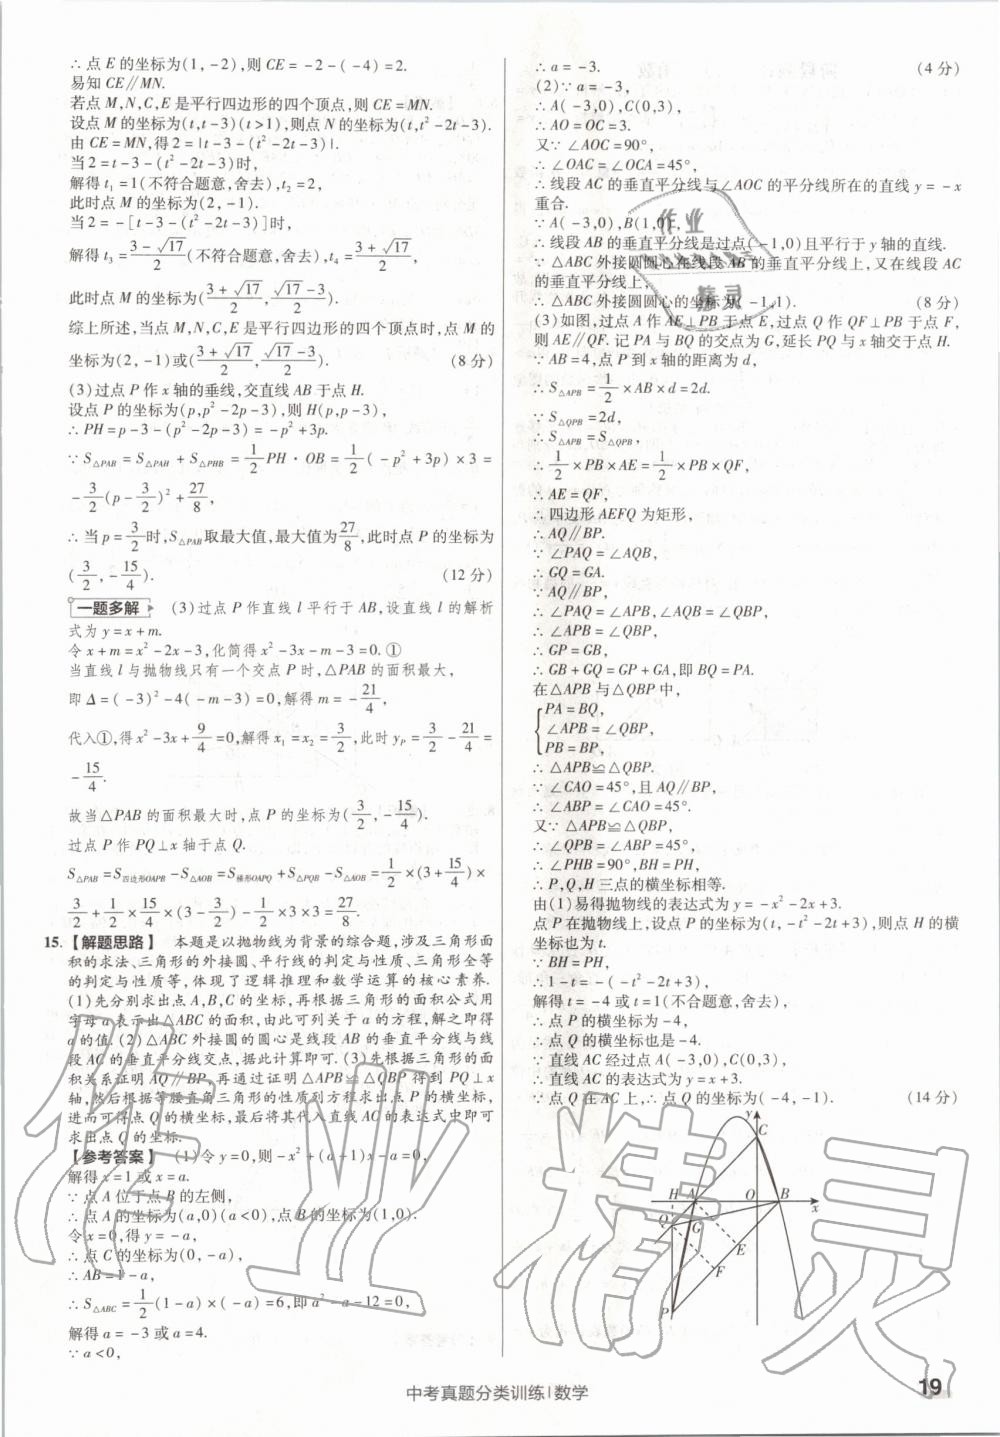 ∴点E的坐标为(1,-2),则CE=-2-(-4)=2.
易知CE∥MN.
若点M,N,C,E是平行四边形的四个顶点,则CE=MN.
设点M的坐标为(t,t-3)(t>1),则点N的坐标为(t,t²-2t-3).
由CE=MN,得2=|t-3-(t²-2t-3)|.
当2=t-3-(t²-2t-3)时,
解得t₁=1(不符合题意,舍去),t₂=2,
此时点M的坐标为(2,-1).
当2=-[t-3-(t²-2t-3)]时,
解得t₃=(3-√17)/2(不符合题意,舍去),t₄=(3+√17)/2,
此时点M的坐标为((3+√17)/2,(√17-3)/2).
综上所述,当点M,N,C,E是平行四边形的四个顶点时,点M的
坐标为(2,-1)或((3+√17)/2,(√17-3)/2). (8分)
(3)过点P作x轴的垂线,交直线AB于点H.
设点P的坐标为(p,p²-2p-3),则H(p,p-3),
∴PH=p-3-(p²-2p-3)=-p²+3p.
∵S△PAB=S△PAH+S△PHB=1/2PH·OB=1/2(-p²+3p)×3=
-3/2(p-3/2)²+27/8,
∴当p=3/2时,S△PAB取最大值,最大值为27/8,此时点P的坐标为
(3/2,-15/4). (12分)
一题多解 (3)过点P作直线l平行于AB,设直线l的解析
式为y=x+m.
令x+m=x²-2x-3,化简得x²-3x-m-3=0.①
当直线l与抛物线只有一个交点P时,△PAB的面积最大,
即Δ=(-3)²-4(-m-3)=0,解得m=-21/4,
代入①,得x²-3x+9/4=0,解得x₁=x₂=3/2,此时yP=3/2-21/4=
-15/4.
故当△PAB的面积最大时,点P的坐标为(3/2,-15/4).
过点P作PQ⊥x轴于点Q.
S△PAB=S四边形OAPB-S△AOB=S梯形OAPQ+S△PQB-S△AOB=1/2×(3+15/4)×
3/2+1/2×15/4×(3-3/2)-1/2×3×3=27/8.
15.【解题思路】 本题是以抛物线为背景的综合题,涉及三角形面
积的求法、三角形的外接圆、平行线的判定与性质、三角形全等
的判定与性质等,体现了逻辑推理和数学运算的核心素养.
(1)先分别求出点A,B,C的坐标,再根据三角形的面积公式用
字母a表示出△ABC的面积,由此可列关于a的方程,解之即得
a的值.(2)△ABC外接圆的圆心是线段AB的垂直平分线与线
段AC的垂直平分线交点,据此计算即可.(3)先根据三角形的面
积关系证明AQ∥BP,再通过证明△APB≌△QBP得到PQ⊥x
轴,然后根据等腰直角三角形的性质列方程求出点P的横坐标,
进而可得点Q的横坐标,最后将其代入直线AC的表达式中即可
求出点Q的坐标.
【参考答案】 (1)令y=0,则-x²+(a+1)x-a=0,
解得x=1或x=a.
∵点A位于点B的左侧,
∴点A的坐标为(a,0)(a<0),点B的坐标为(1,0).
令x=0,得y=-a,
∴点C的坐标为(0,-a),
∴AB=1-a,
∴S△ABC=1/2(1-a)×(-a)=6,即a²-a-12=0,
解得a=-3或a=4.
∵a<0,
∴a=-3. (4分)
(2)∵a=-3,
∴A(-3,0),C(0,3),
∴AO=OC=3.
又∵∠AOC=90°,
∴∠OAC=∠OCA=45°,
∴线段AC的垂直平分线与∠AOC的平分线所在的直线y=-x
重合.
∵A(-3,0),B(1,0),
∴线段AB的垂直平分线是过点(-1,0)且平行于y轴的直线.
∵△ABC外接圆圆心在线段AB的垂直平分线上,又在线段AC
的垂直平分线上,
∴△ABC外接圆圆心的坐标为(-1,1). (8分)
(3)如图,过点A作AE⊥PB于点E,过点Q作QF⊥PB于点F,
则AE∥QF.记PA与BQ的交点为G,延长PQ与x轴交于点H.
∵AB=4,点P到x轴的距离为d,
∴S△APB=1/2×AB×d=2d.
∵S△QPB=2d,
∴S△APB=S△QPB,
∴1/2×PB×AE=1/2×PB×QF,
∴AE=QF,
∴四边形AEFQ为矩形,
∴AQ∥BP.
∵∠PAQ=∠AQB,
∴GQ=GA.
∵AQ∥BP,
∴∠PAQ=∠APB,∠AQB=∠QBP,
∴∠APB=∠QBP,
∴GP=GB,
∴GB+GQ=GP+GA,即BQ=PA.
在△APB与△QBP中,
PA=BQ,
∠APB=∠QBP,
PB=BP,
∴△APB≌△QBP.
∵∠CAO=45°,且AQ∥BP,
∴∠ABP=∠CAO=45°.
又∵△APB≌△QBP,
∴∠QPB=∠ABP=45°,
∴∠PHB=90°,BH=PH,
∴P,Q,H三点的横坐标相等.
由(1)易得抛物线的表达式为y=-x²-2x+3.
点P在抛物线上,设点P的坐标为(t,-t²-2t+3),则点H的横
坐标也为t.
∵BH=PH,
∴1-t=-(-t²-2t+3),
解得t=-4或t=1(不合题意,舍去),
∴点P的横坐标为-4,
∴点Q的横坐标也是-4.
∵直线AC经过点A(-3,0),C(0,3),
∴直线AC的表达式为y=x+3.
∵点Q在AC上,∴点Q的坐标为(-4,-1). (14分)
y
C
H A O B x
Q G
E
F
P
作业
精灵
作业精灵
中考真题分类训练|数学
19